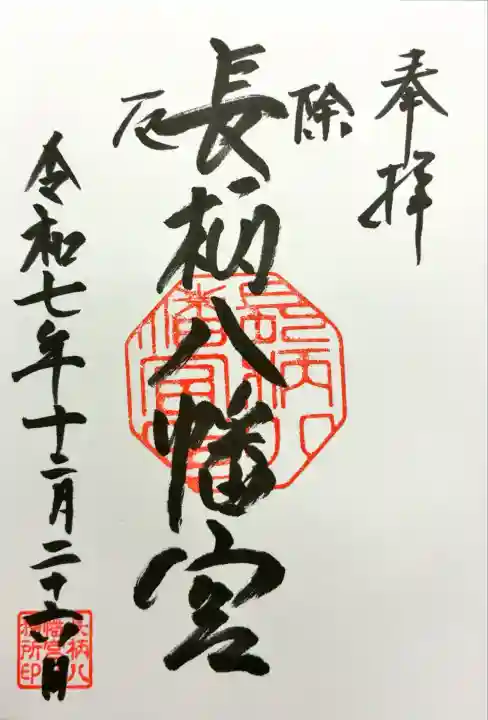 奉拝
除厄
長柄八幡宮
令和七年十二月二十六日
長柄八幡宮
長柄八幡宮社務所印